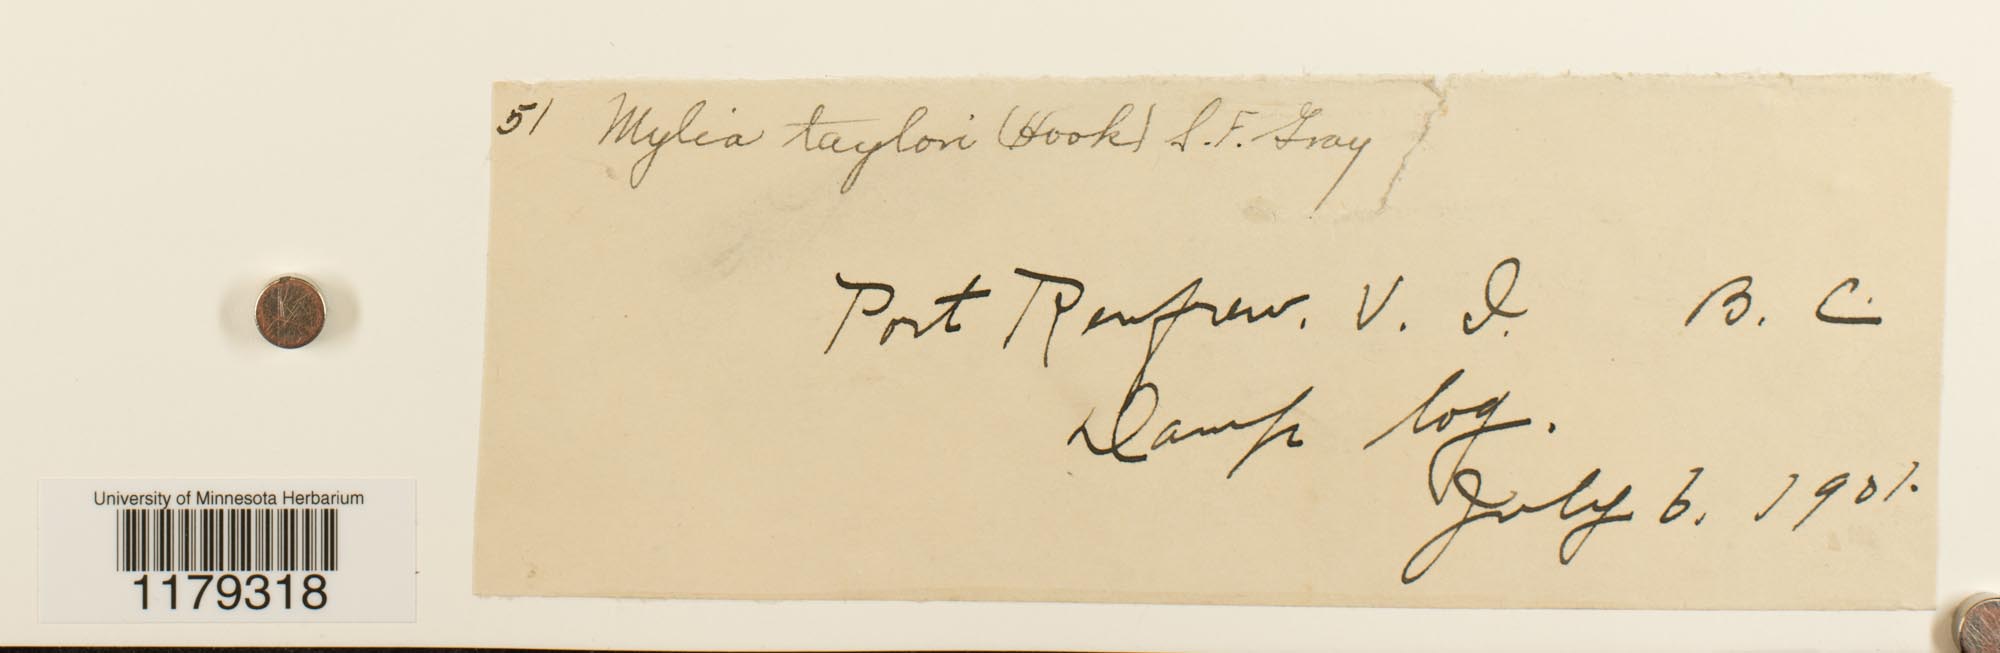 51 Mylia taylori (Hook) S.F. Gray
Port Renfrew. V. I. B. C.
Damp log.
July 6. 1901.
University of Minnesota Herbarium
1179318